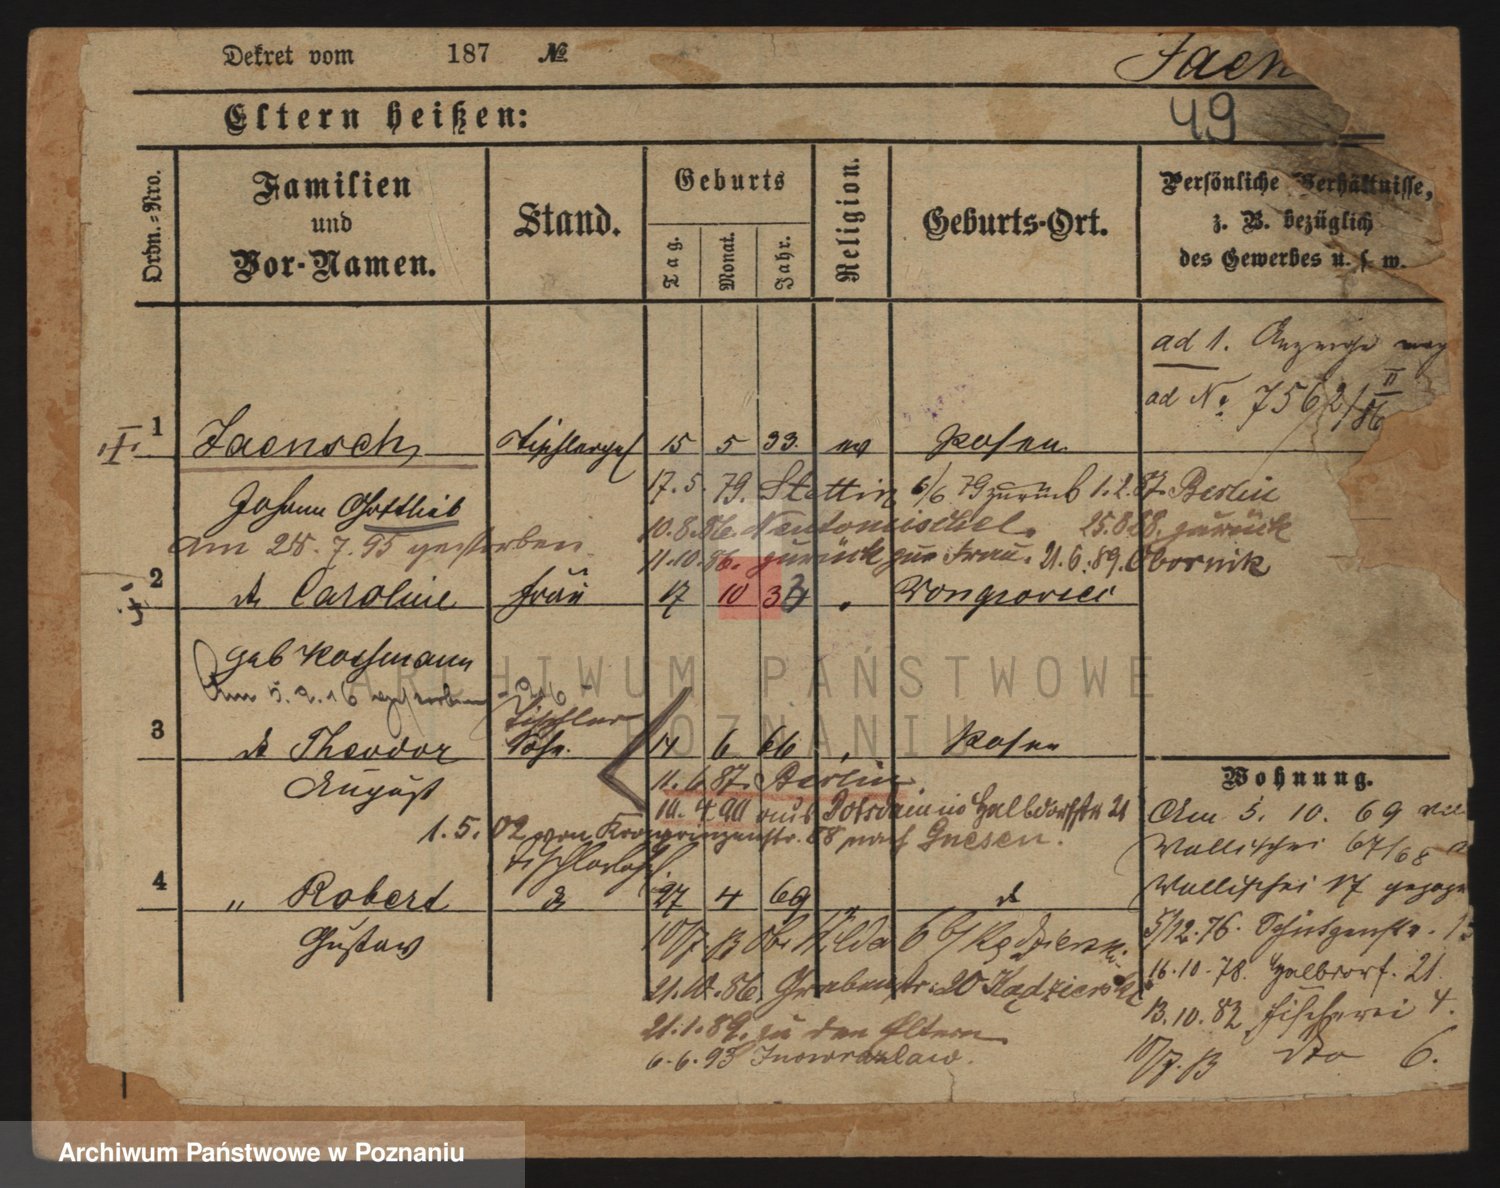 Dekret vom 187 №
Jaen
49
Eltern heißen:
Ordn.=Nro.
Familien
und
Vor-Namen.
Stand.
Geburts
Tag.
Monat.
Jahr.
Religion.
Geburts-Ort.
Persönliche Verhältnisse,
z. B. bezüglich
des Gewerbes u. s. w.
ad 1. Anzeige
ad No. 7562/II 86
1 Jaensch Tischlerges 15 5 33 ev Posen
Johann Gottlieb
17. 5. 79. Stettin 6/6 79 zurück 1. 2. 87. Berlin
10. 8. 86. Neutomischel. 25. 8. 88. zurück
am 28. 7. 95 gestorben
11. 10. 86. zurück zur Frau. 21. 6. 89. Obornik
2 do Caroline Frau 17 10 33 Wongrowiec
geb
Am 5. 2. 16 gestorben
3 do Theodor Tischler Sohn. 14 6 66 Posen
August
11. 6. 87. Berlin
10. 4. 90 aus Potsdam no Halbdorfstr 21
1. 5. 02 von Kronprinzenstr. 88 nach Gnesen.
4 " Robert Tischlerlehrl. do 27 4 69 do
Gustav
21. 10. 86. Grabenstr. 20 Kądzierski
21. 1. 89. zu den Eltern
6. 6. 93 Inowrazlaw.
Wohnung.
Am 5. 10. 69
Wallischei 67/68
Wallischei 17 gezogen
5/12. 76. Schützenstr. 13
16. 10. 78. Halbdorf. 21.
13. 10. 82 Fischerei 4.
dto 6.
ARCHIWUM PAŃSTWOWE
POZNANIU
Archiwum Państwowe w Poznaniu